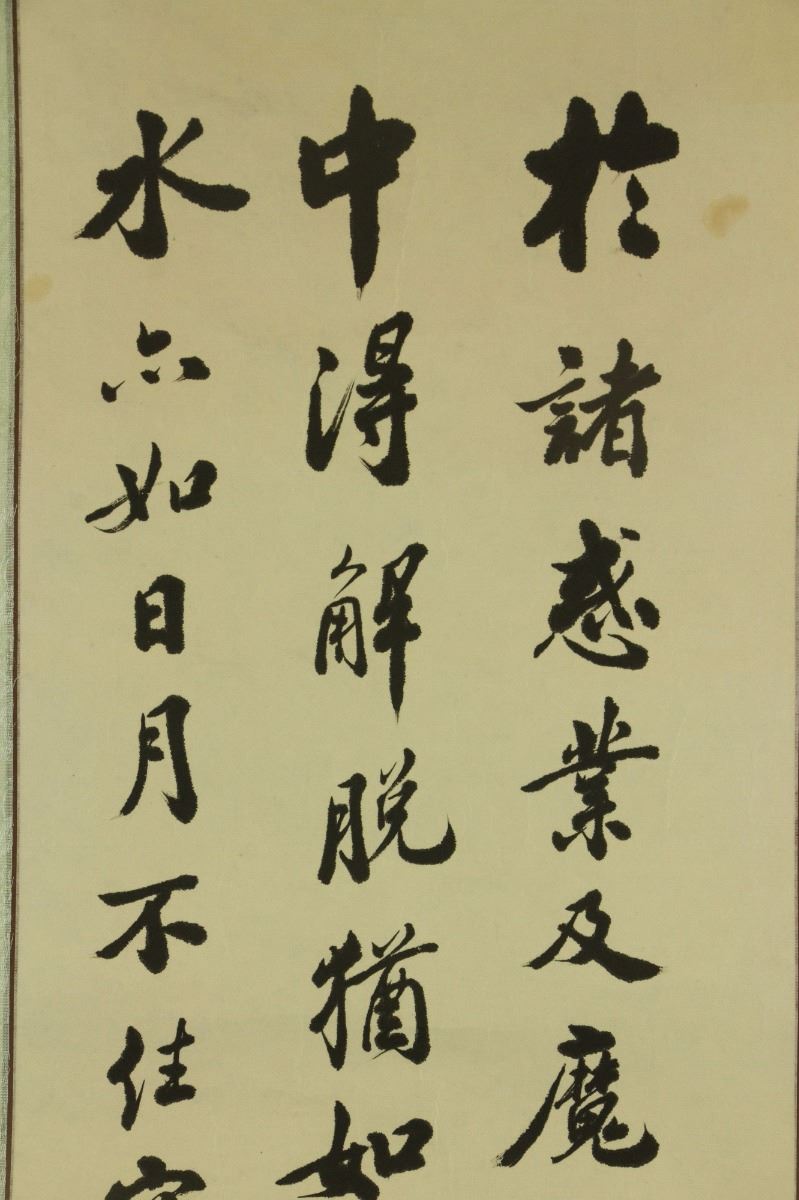 於諸惑業及魔
中得解脱猶如
水亦如日月不住空